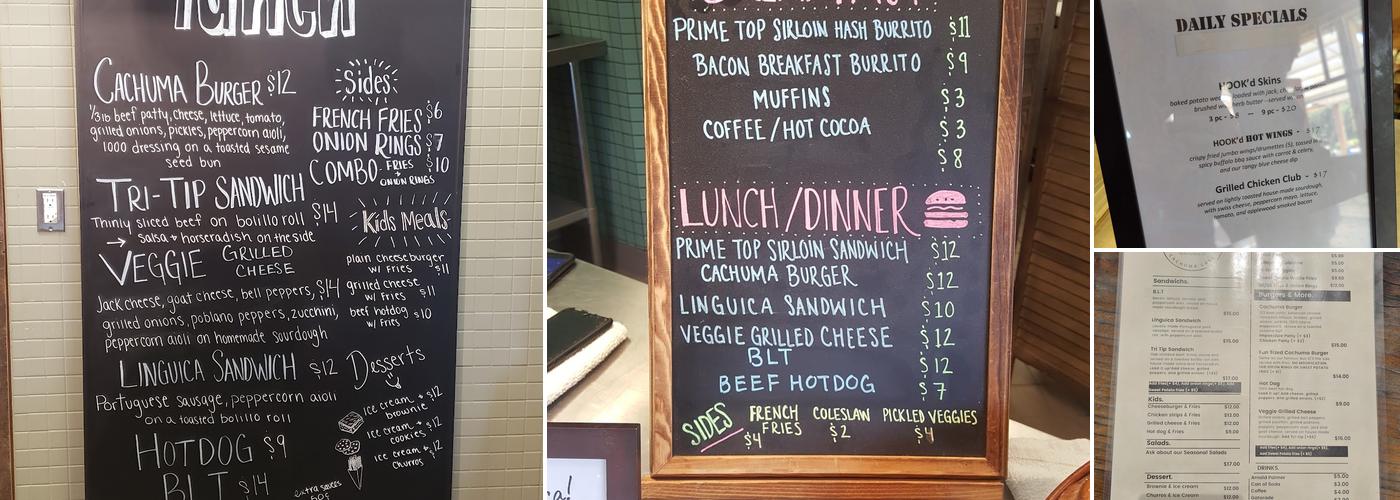 Lunch
CACHUMA BURGER $12
1/3 lb beef patty, cheese, lettuce, tomato,
grilled onions, pickles, peppercorn aioli,
1000 dressing on a toasted sesame
seed bun
TRI-TIP SANDWICH $14
Thinly sliced beef on bolillo roll
→ salsa + horseradish on the side
VEGGIE GRILLED CHEESE $14
Jack cheese, goat cheese, bell peppers,
grilled onions, poblano peppers, zucchini,
peppercorn aioli on homemade sourdough
LINGUICA SANDWICH $12
Portuguese sausage, peppercorn aioli
on a toasted bolillo roll
HOTDOG $9
BLT $14
Sides
FRENCH FRIES $6
ONION RINGS $7
COMBO - FRIES + ONION RINGS $10
Kids Meals
plain cheeseburger
w/ fries $11
grilled cheese
w/ fries $11
beef hotdog
w/ fries $10
Desserts
ice cream + brownie $12
ice cream + cookies $12
ice cream + churros $12
extra sauces
50¢
BREAKFAST
PRIME TOP SIRLOIN HASH BURRITO $11
BACON BREAKFAST BURRITO $9
MUFFINS $3
COFFEE / HOT COCOA $3
$8
LUNCH/DINNER
PRIME TOP SIRLOIN SANDWICH $12
CACHUMA BURGER $12
LINGUICA SANDWICH $10
VEGGIE GRILLED CHEESE $12
BLT $12
BEEF HOTDOG $7
SIDES
FRENCH FRIES $4
COLESLAW $2
PICKLED VEGGIES $4
DAILY SPECIALS
HOOK'd Skins
baked potato loaded with jack,
brushed herb butter - served
3 pc - $8 — 9 pc - $20
HOOK'd HOT WINGS - $17
crispy fried jumbo wings/drumettes (5), tossed in
spicy buffalo bbq sauce with carrot & celery,
and our tangy blue cheese dip
Grilled Chicken Club - $17
served on lightly toasted house-made sourdough,
with swiss cheese, peppercorn mayo, lettuce,
tomato, and applewood smoked bacon
Sandwichs.
B.L.T
$15.00
Linguica Sandwich
$15.00
Tri Tip Sandwich
$17.00
Kids.
Cheeseburger & Fries $12.00
Chicken strips & Fries $13.00
Grilled cheese & Fries $12.00
Hot dog & Fries $9.00
Salads.
Ask about our Seasonal Salads
$17.00
Dessert.
Brownie & Ice cream $12.00
Churros & Ice Cream $12.00
Burgers & More.
Cachuma Burger
$15.00
Fun Sized Cachuma Burger
$14.00
Hot Dog
$9.00
Veggie Grilled Cheese
$16.00
DRINKS.
Arnold Palmer $5.00
Can of Soda $3.00
Coffee $4.00